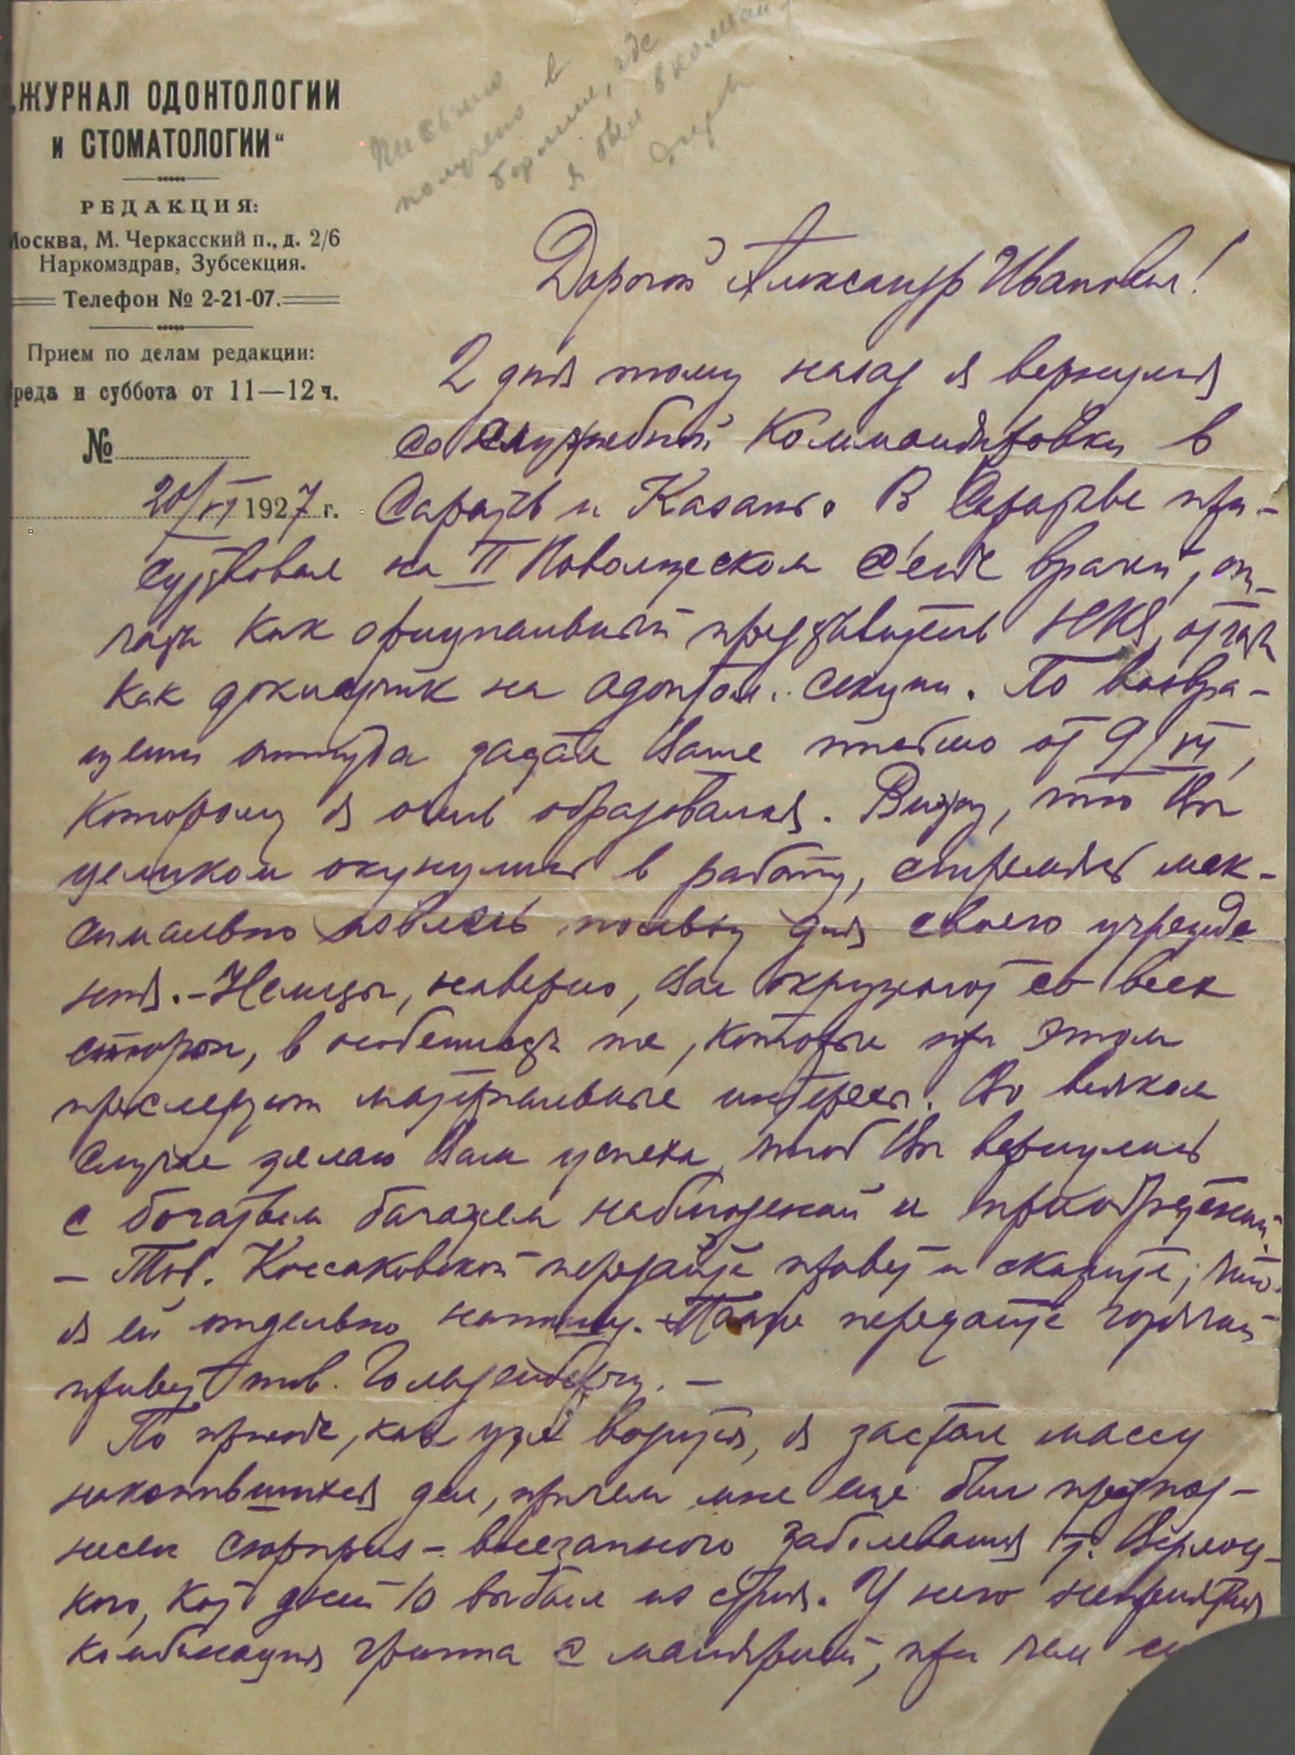 „ЖУРНАЛ ОДОНТОЛОГИИ
и СТОМАТОЛОГИИ“
РЕДАКЦИЯ:
Москва, М. Черкасский п., д. 2/6
Наркомздрав, Зубсекция.
Телефон № 2-21-07.
Прием по делам редакции:
реда и суббота от 11—12 ч.
№
20/VI 1927 г.
Письмо
получено в
Берлине, где
я был в коман
Дорогой Александр Иванович!
2 дня тому назад я вернулся
со служебной Коммандировки в
Саратов и Казань. В Саратове при-
сутствовал на II Поволжском С'езде врачей, от-
части как официальный представитель НКЗ, отчасти
как докладчик на одонтол. секции. По возвра-
щении оттуда застал Ваше письмо от 9/VI,
которому я очень обрадовался. Вижу, что Вы
целиком окунулись в работу, стремясь мак-
симально извлечь пользу для своего учрежде
ния. - Немцы, наверно, Вас окружают со всех
сторон, в особенности те, которые при этом
преследуют материальные интересы. Во всяком
случае желаю Вам успеха, чтоб Вы вернулись
с богатым багажем наблюдений и приобретений.
- Тов. Коссаковской передайте привет и скажите, что
я ей отдельно напишу. - Также передайте горячий
привет тов. Гольденбергу. -
По приезде, как уж водится, я застал массу
накопившихся дел, причем мне еще был преподнесен
сюрприз - внезапного заболевания т.
кого, кот дней 10 выбыл из строя. У него неприятная
комбинация гриппа с малярией, при чем